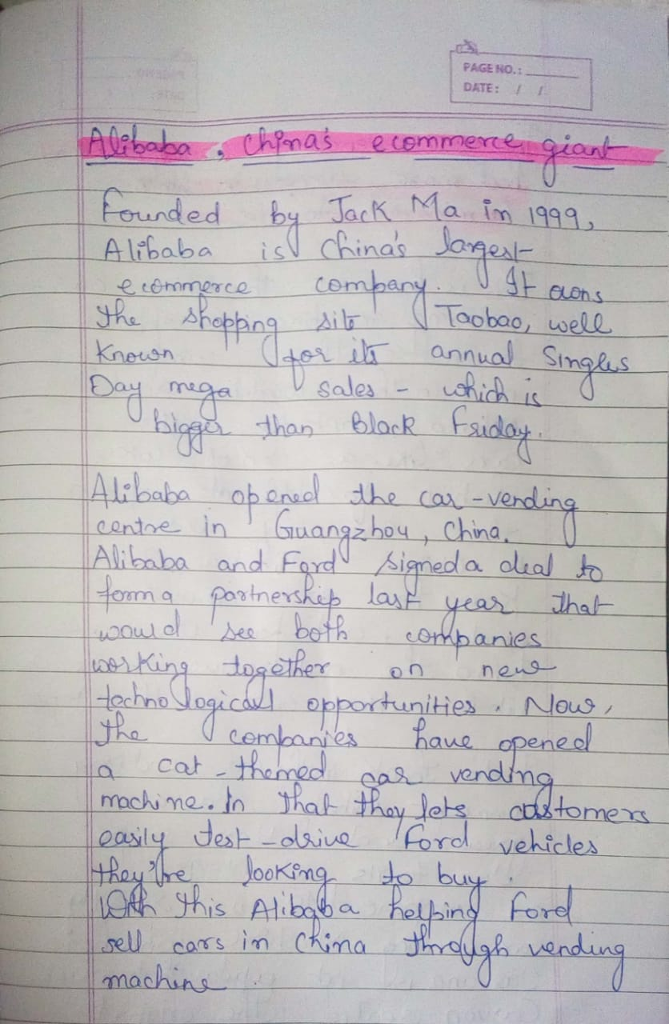 PAGE NO.:
DATE: / /
Alibaba, China's ecommerce giant
Founded by Jack Ma in 1999,
Alibaba is China's largest
ecommerce company. It owns
the shopping site Taobao, well
known for its annual Singles
Day mega sales - which is
bigger than Black Friday.
Alibaba opened the car-vending
centre in Guangzhou, China.
Alibaba and Ford signed a deal to
form a partnership last year that
would see both companies
working together on new
technological opportunities. Now,
the companies have opened
a cat-themed car vending
machine. In that they lets customers
easily test-drive Ford vehicles
they're looking to buy.
With this Alibaba helping Ford
sell cars in China through vending
machine